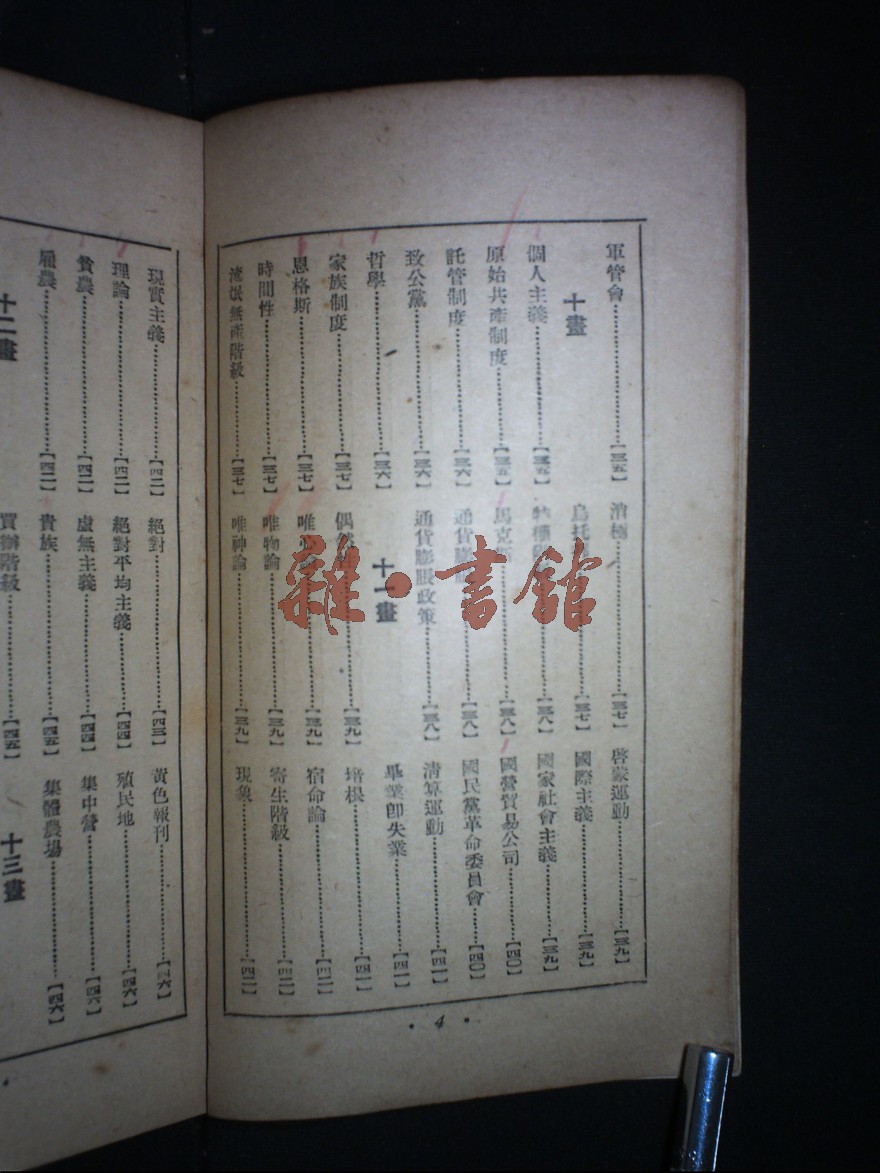 軍管會……【三五】
十畫
個人主義……【三五】
原始共產制度……【三五】
託管制度……【三六】
致公黨……【三六】
哲學……【三六】
家族制度……【三七】
恩格斯……【三七】
時間性……【三七】
流氓無產階級……【三七】
消極……【三七】
烏托……【三七】
……【三八】
馬克……【三八】
通貨膨脹……【三八】
通貨膨脹政策……【三八】
十一畫
偶然……【三九】
唯心……【三九】
唯物論……【三九】
唯神論……【三九】
啓蒙運動……【三九】
國際主義……【三九】
國家社會主義……【三九】
國營貿易公司……【四〇】
國民黨革命委員會……【四〇】
清算運動……【四一】
畢業卽失業……【四一】
培根……【四一】
宿命論……
寄生階級……
現象……【四二】
· 4 ·
現實主義……【四二】
理論……【四二】
貧農……【四二】
雇農……【四二】
十二畫
絕對……【四三】
絕對平均主義……【四四】
虛無主義……【四四】
貴族……【四五】
買辦階級……【四五】
黃色報刊……【四六】
殖民地……【四六】
集中營……【四六】
集體農場……【四六】
十三畫
雜·書館